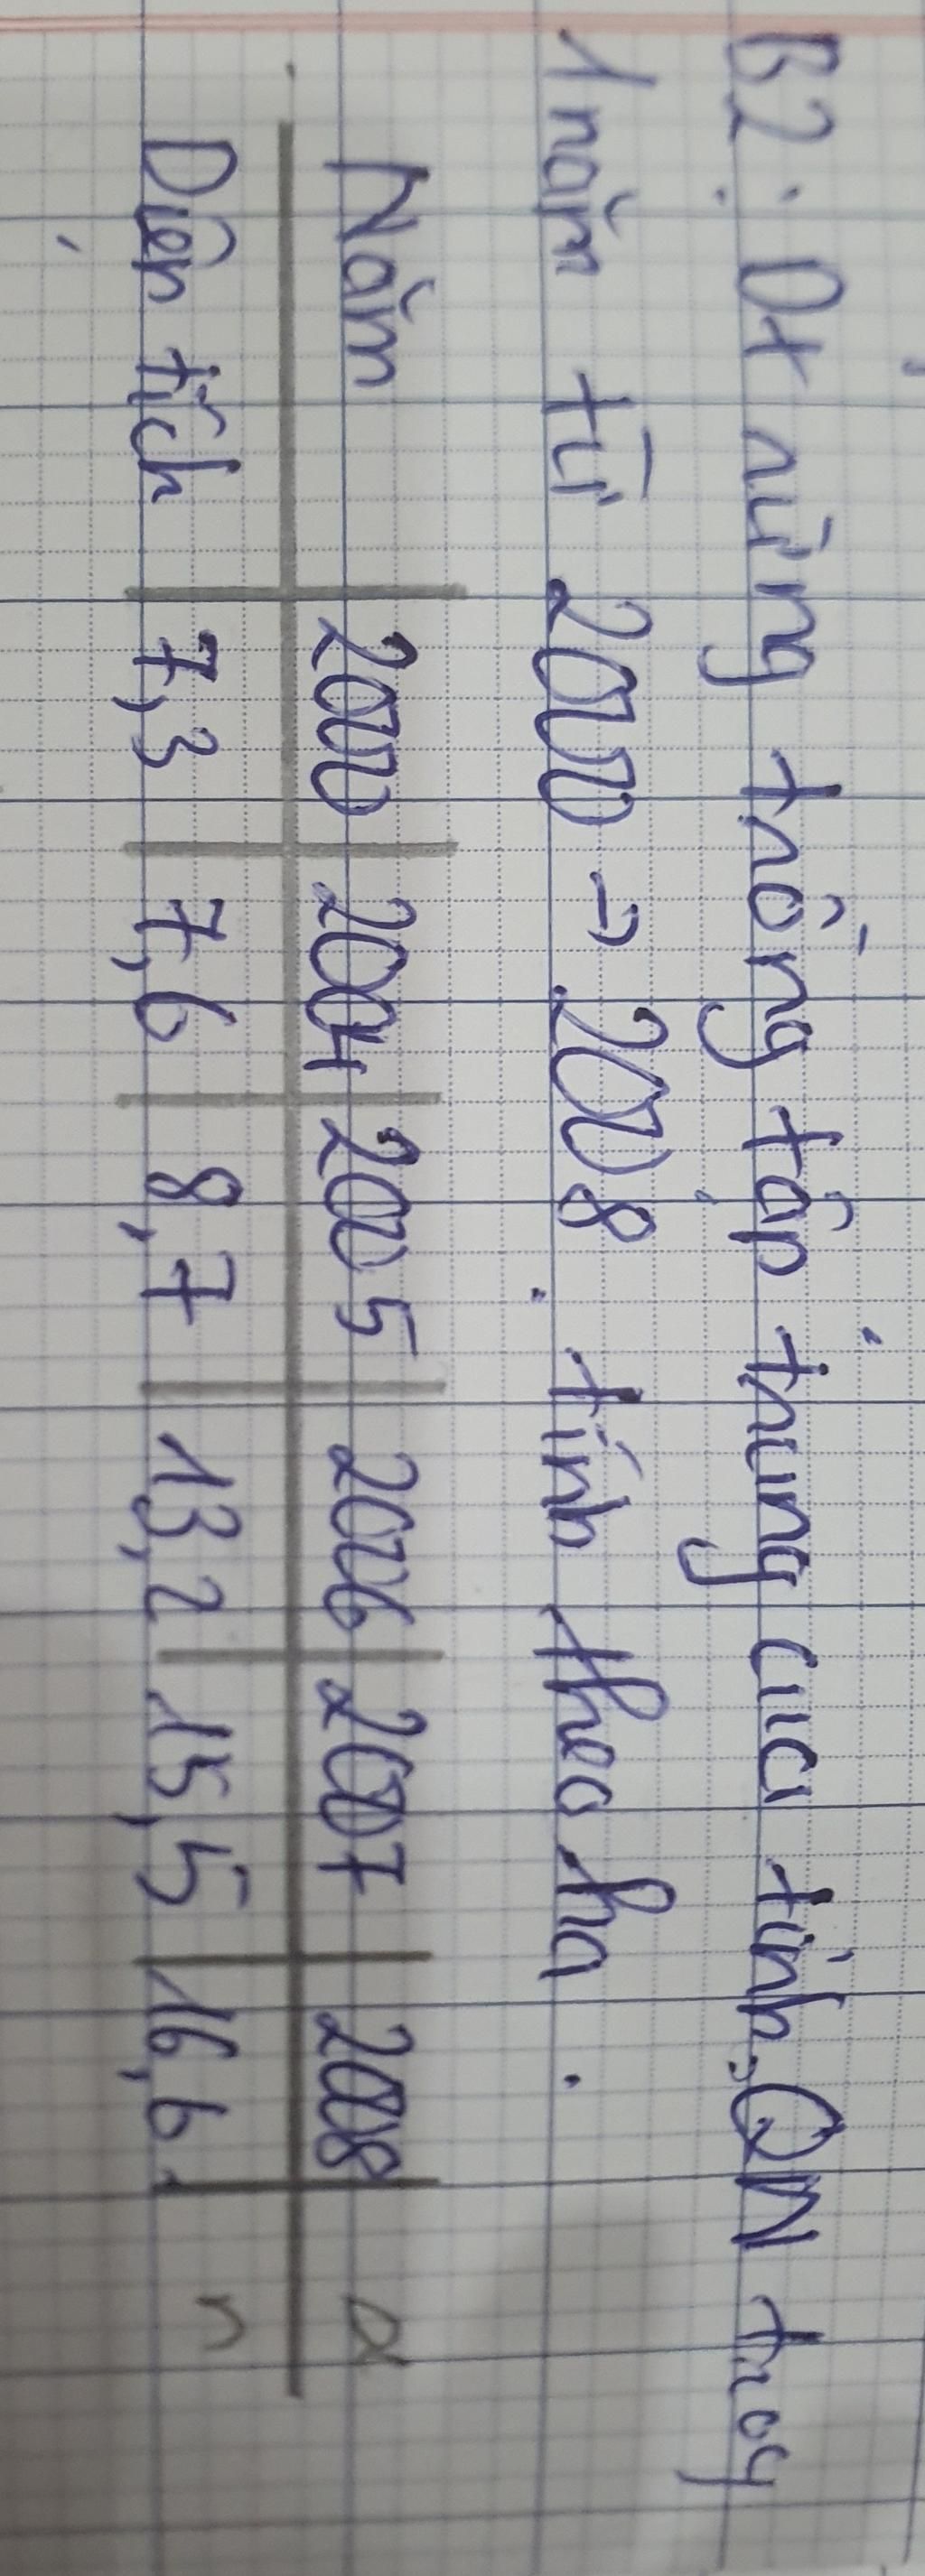 B2: Dt rừng trồng tập trung của tỉnh QN trog
1 năm từ 2000 → 2008. tính theo ha.
Năm 2000 2004 2005 2006 2007 2008
Diện tích 7,3 7,6 8,7 13,2 15,5 16,6